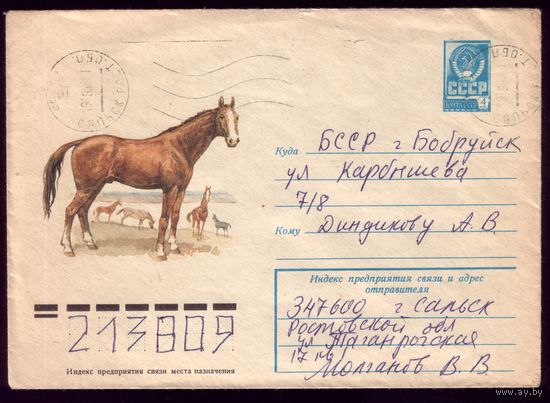 СССР
ПОЧТА СССР 4
Куда БССР г Бобруйск
ул Карбышева
7/8
Кому Диндикову А. В.
Индекс предприятия связи и адрес
отправителя
347600 г. Сальск
Ростовской обл
ул Таганрогская
Молганов В. В.
213809
Индекс предприятия связи места назначения
www.ay.by